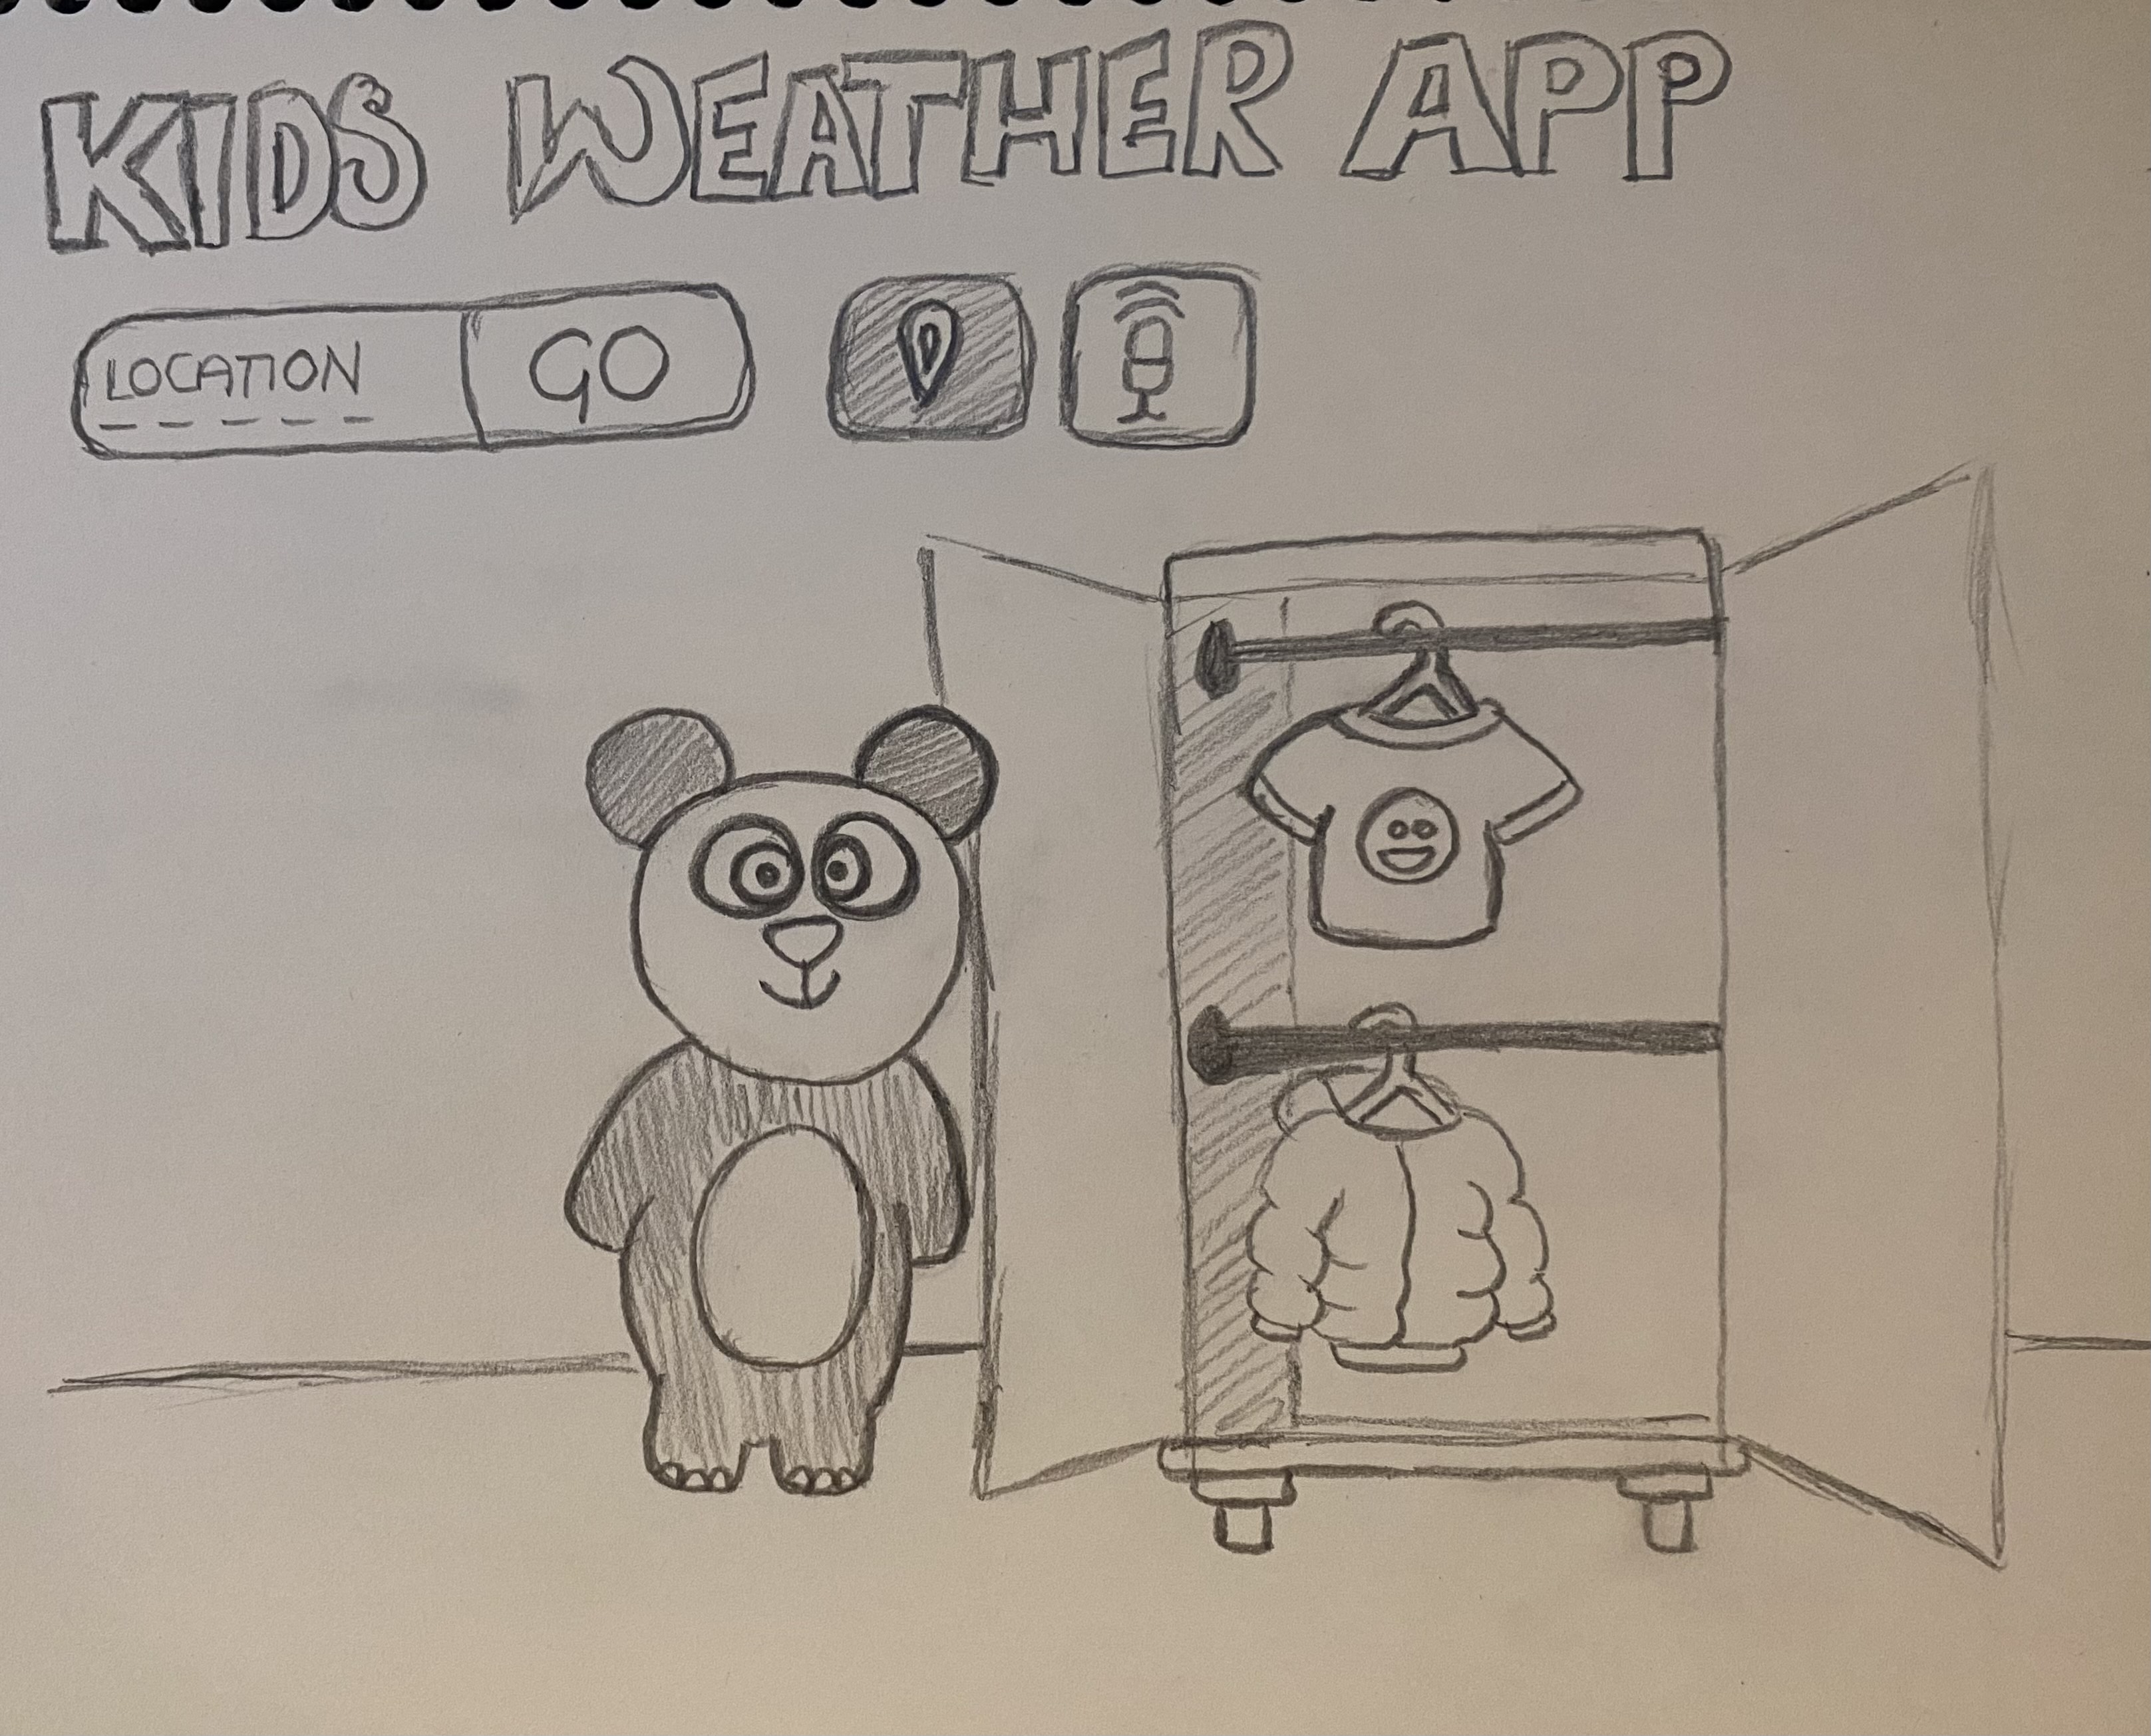 KIDS WEATHER APP
LOCATION GO